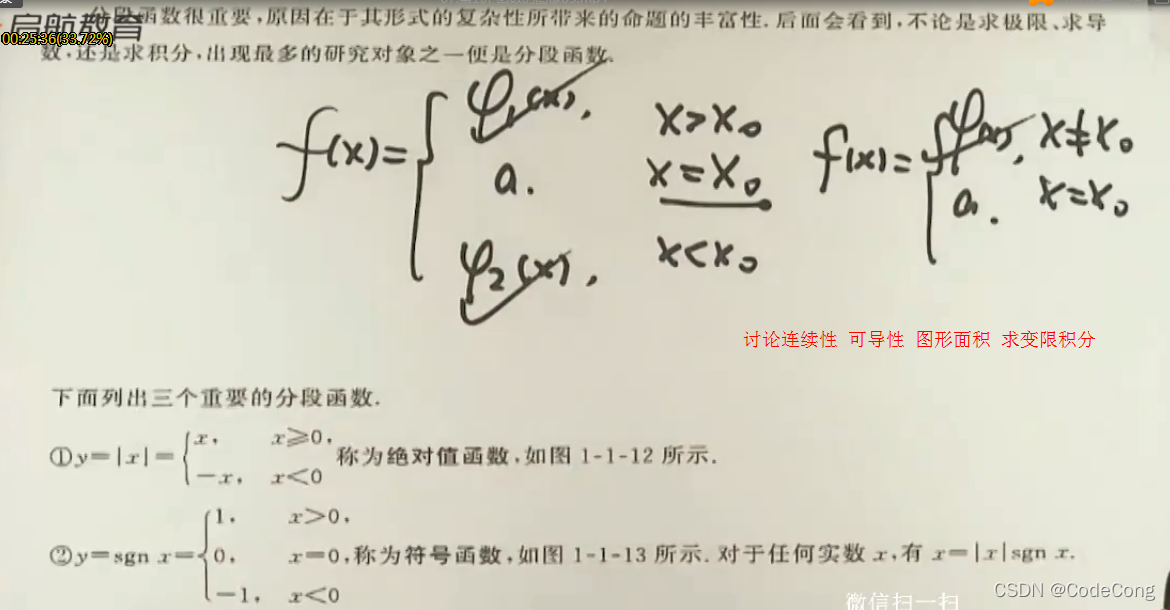 启航教育
00:25:36(33.72%)
分段函数很重要,原因在于其形式的复杂性所带来的命题的丰富性.后面会看到,不论是求极限、求导
数,还是求积分,出现最多的研究对象之一便是分段函数.
f(x)={ φ₁(x), x>x₀
a. x=x₀
φ₂(x), x<x₀
f(x)={ φ(x), x≠x₀
a. x=x₀
讨论连续性 可导性 图形面积 求变限积分
下面列出三个重要的分段函数.
①y=|x|={ x, x⩾0,
-x, x<0
称为绝对值函数,如图 1-1-12 所示.
②y=sgn x={ 1, x>0,
0, x=0,称为符号函数,如图 1-1-13 所示.对于任何实数 x,有 x=|x|sgn x.
-1, x<0
微信扫一扫
CSDN @CodeCong